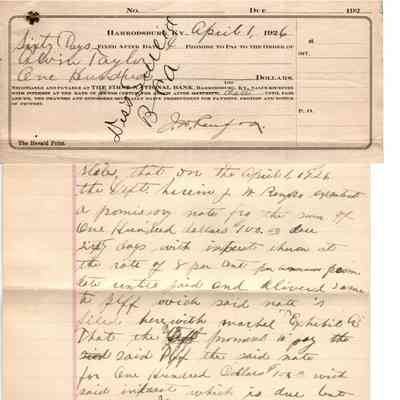 No. Due 192
Harrodsburg, Ky. April 1, 1926
Sixty Days Fixed After Date I Promise to Pay to the Order of
Alvin Taylor
One Hundred 100 Dollars.
Negotiable and Payable at The First National Bank, Harrodsburg, Ky., Value Received
with interest at the rate of until paid
and we, the drawers and endorsers severally waive presentment for payment, protest and notice
of protest.
P. O.
The Herald Print.
states, that on the April 1, 1926
the Defts herein J. W. executed
a promissory note for the sum of
One Hundred dollars $100.00 due
sixty days with interest thereon at
the rate of 8 per cent per
until paid and delivered same
to plff which said note is
filed herewith marked "Exhibit"
That the Deft promised to pay the
said Plff the said note
for One Hundred Dollars $100 with
said interest which is due but